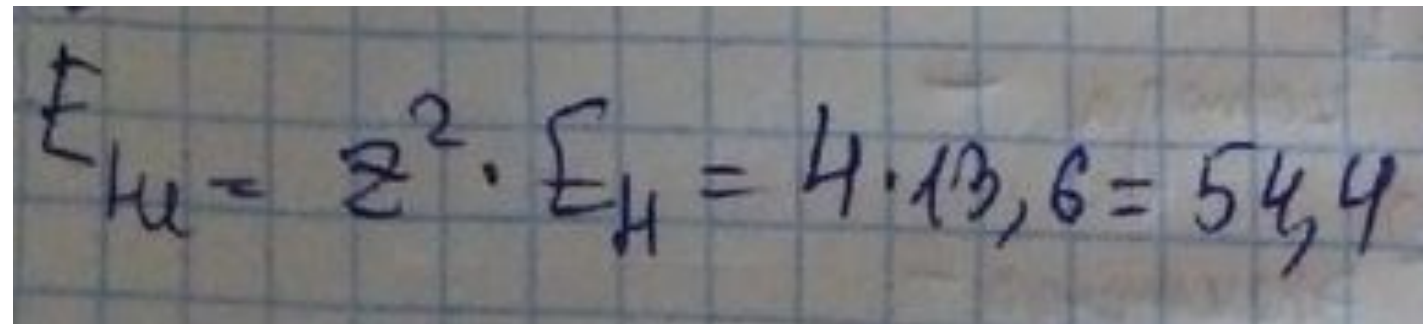 E_He = z² · E_H = 4 · 13,6 = 54,4